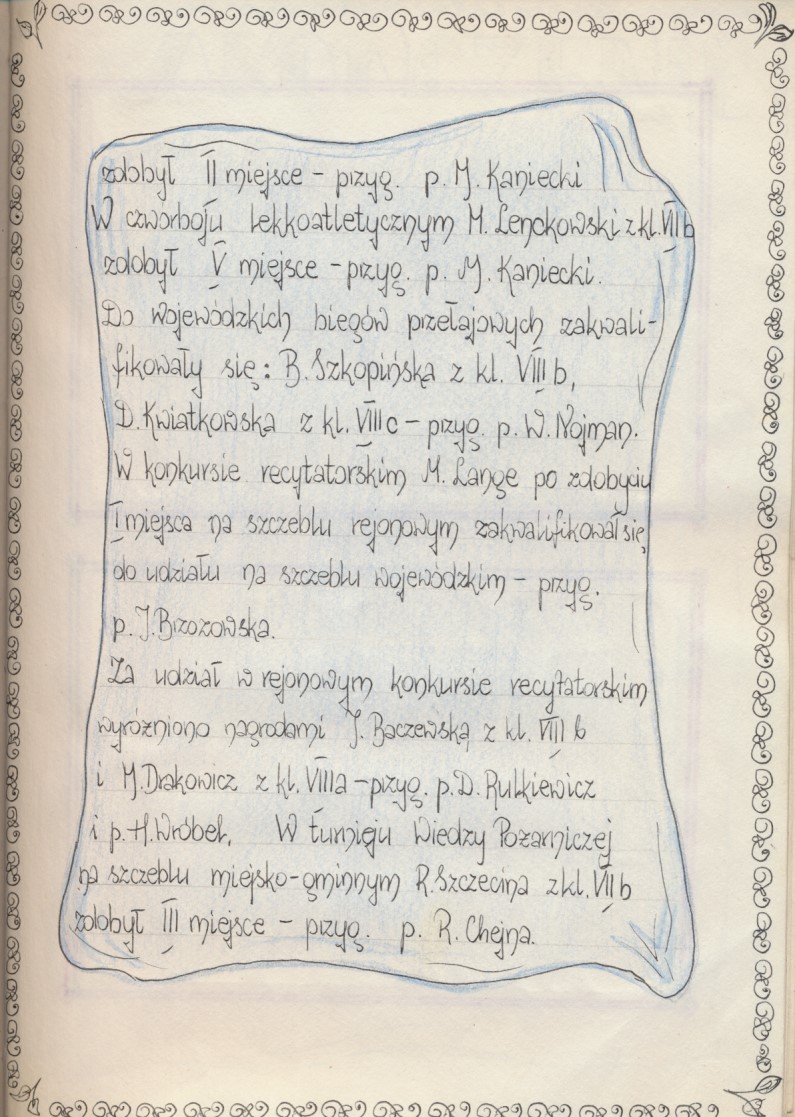 zdobył II miejsce - przyg. p. M. Kaniecki
W czwórboju lekkoatletycznym M. Lenckowski z kl. VII b
zdobył V miejsce - przyg. p. M. Kaniecki.
Do wojewódzkich biegów przełajowych zakwali-
fikowały się: B. Szkopińska z kl. VIII b,
D. Kwiatkowska z kl. VIII c - przyg. p. W. Nojman.
W konkursie recytatorskim M. Lange po zdobyciu
I miejsca na szczeblu rejonowym zakwalifikował się
do udziału na szczeblu wojewódzkim - przyg.
p. J. Brzozowska.
Za udział w rejonowym konkursie recytatorskim
wyróżniono nagrodami J. Baczewską z kl. VIII b
i M. Drakowicz z kl. VIII a - przyg. p. D. Rulkiewicz
i p. H. Wróbel. W turnieju Wiedzy Pożarniczej
na szczeblu miejsko-gminnym R. Szczecina z kl. VII b
zdobył III miejsce - przyg. p. R. Chejna.